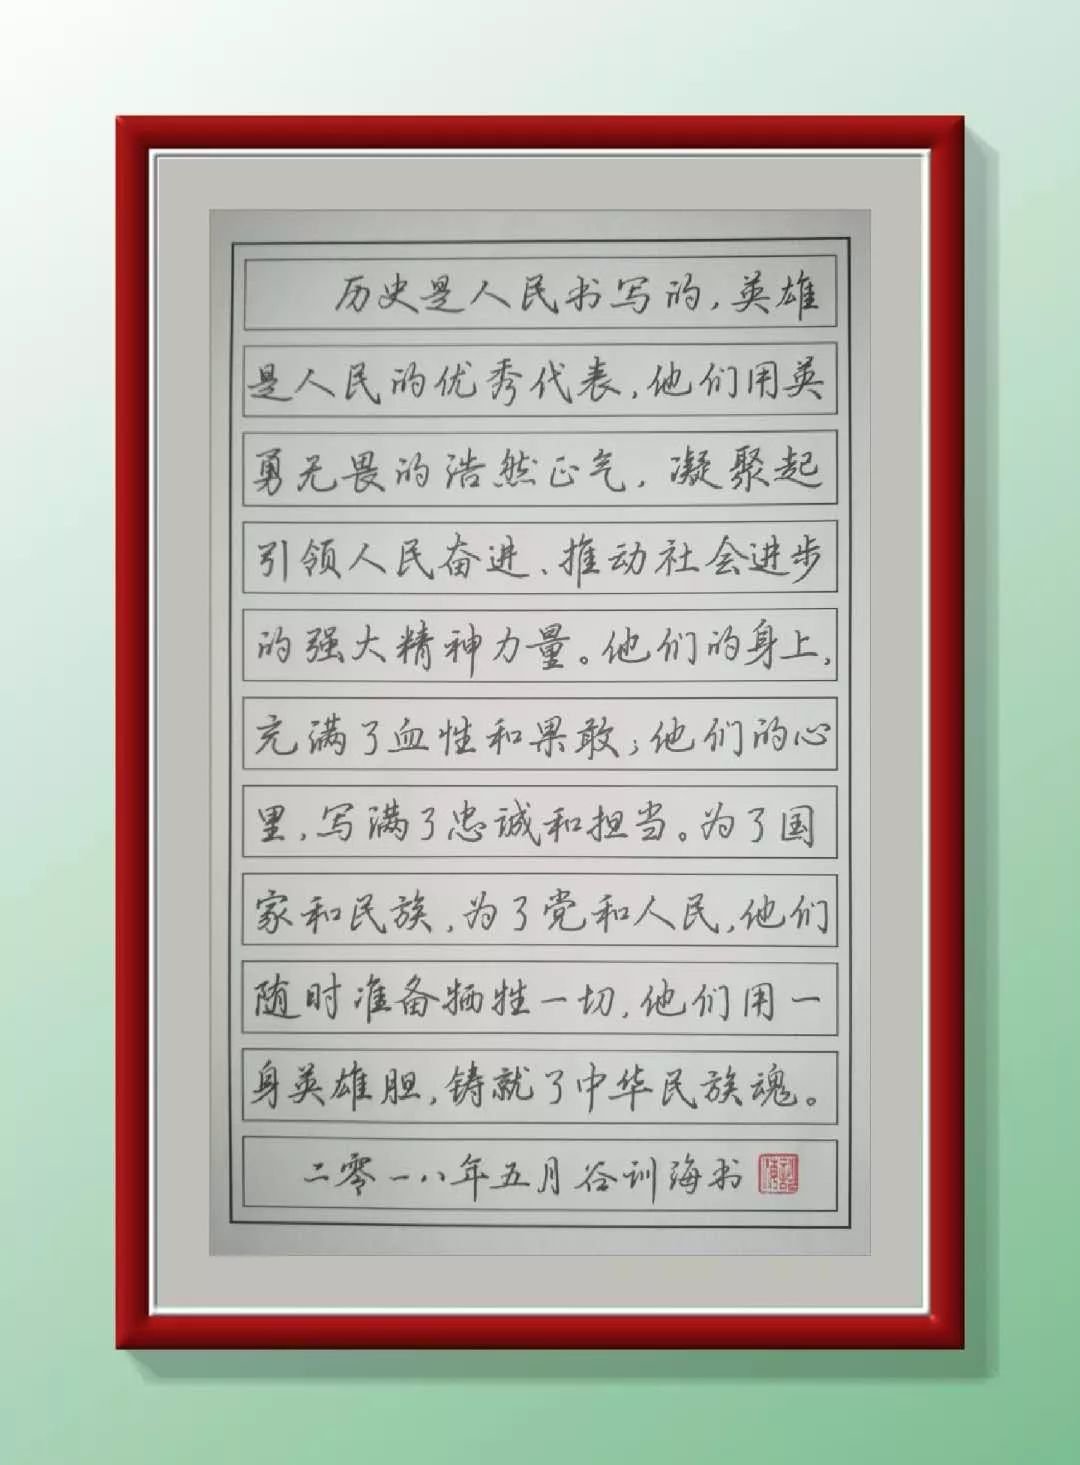 历史是人民书写的，英雄
是人民的优秀代表，他们用英
勇无畏的浩然正气，凝聚起
引领人民奋进、推动社会进步
的强大精神力量。他们的身上，
充满了血性和果敢；他们的心
里，写满了忠诚和担当。为了国
家和民族，为了党和人民，他们
随时准备牺牲一切，他们用一
身英雄胆，铸就了中华民族魂。
二零一八年五月谷训海书